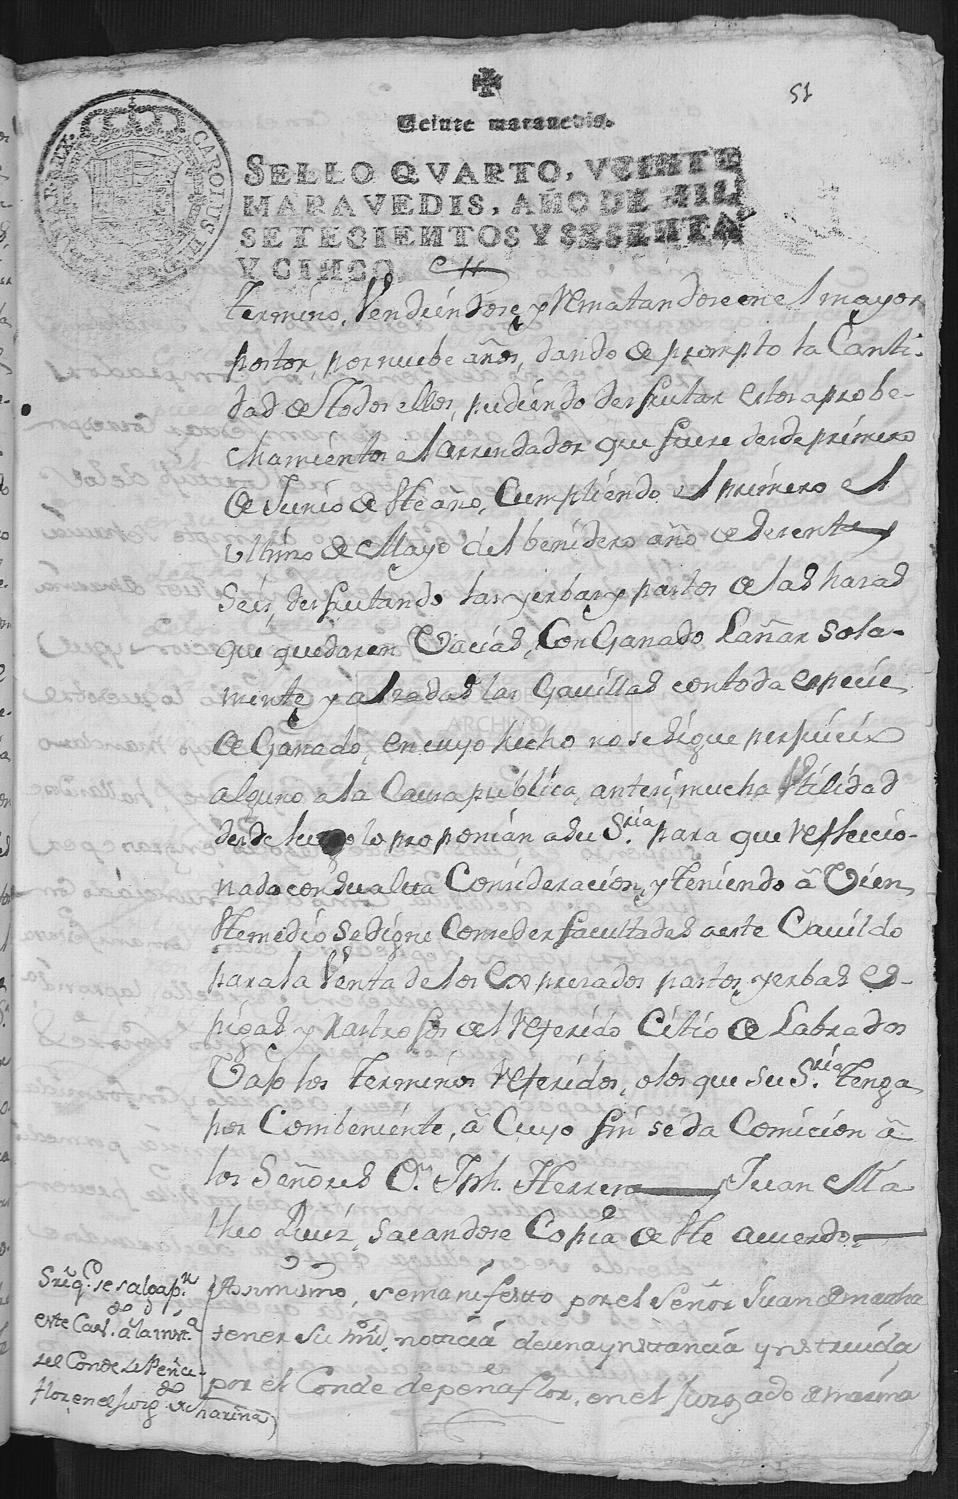 51
Veinte maravedis.
SELLO QVARTO, VEINTE
MARAVEDIS, AÑO DE MIL
SETECIENTOS Y SESENTA
Y CINCO.
CAROLUS III
termino, Vendiendose, y Rematandose en el mayor
postor, por nuebe años, dando de prompto la Canti-
dad de todos ellos, pudiendo desfrutar estos aprobe-
chamientos el Arrendador que fuere desde primero
de Junio de este año, Cumpliendo el primero el
ultimo de Mayo del benidero año de sesenta y
Seis, desfrutando las yerbas y pastos de las hazas
que quedaren Vacias, Con Ganado Lañar sola-
mente, y alzadas las Gavillas con toda especie
de Ganado, en cuyo hecho no se sigue perjuicio
alguno a la Causa publica, antes si, mucha Utilidad
desde luego lo proponian a su Sria. para que reflecio-
nado con su alta Consideracion, y teniendo â Vien
este medio se digne Conceder facultades a este Cavildo
para la Venta de los Expresados pastos, yerbas es-
pigas y Rastrojos del referido Citio de Labrados
Vajo los terminos referidos, o los que su Sria. tenga
por Combeniente, â Cuyo fin se da Comicion â
los Señores Dn. Jph. Herrera y Juan Ma
theo Ruiz, sacandose Copia de este acuerdo.
Asimismo, se manifesto por el Señor Juan de
tener su mrd. noticia de una ynstancia ynstruida
por el Conde de peñaflor, en el Juzgado de marina
Sre. q.e se salga p.r
este Cav.do â la inst.a
del Conde de Peña
flor, en el Juzg.do de
marina
ARCHIVO